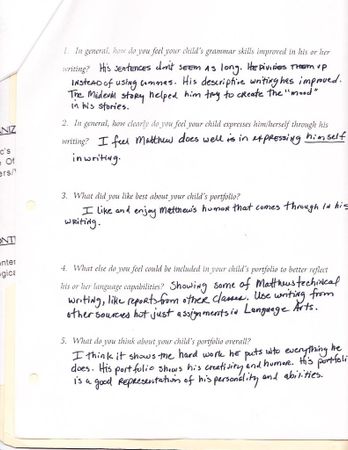 1. In general, how do you feel your child's grammar skills improved in his or her
writing? His sentences don't seem as long. He divides them up
instead of using commas. His descriptive writing has improved.
The Mideval story helped him try to create the "mood"
in his stories.
2. In general, how clearly do you feel your child expresses him/herself through his
writing? I feel Matthew does well is in expressing himself
in writing.
3. What did you like best about your child's portfolio?
I like and enjoy Matthew's humor that comes through in his
writing.
4. What else do you feel could be included in your child's portfolio to better reflect
his or her language capabilities? Showing some of Matthews techinical
writing, like reports from other classes. Use writing from
other sources not just assignments in Language Arts.
5. What do you think about your child's portfolio overall?
I think it shows the hard work he puts into everything he
does. His portfolio shows his creativity and humor. His portfolio
is a good representation of his personality and abilities.